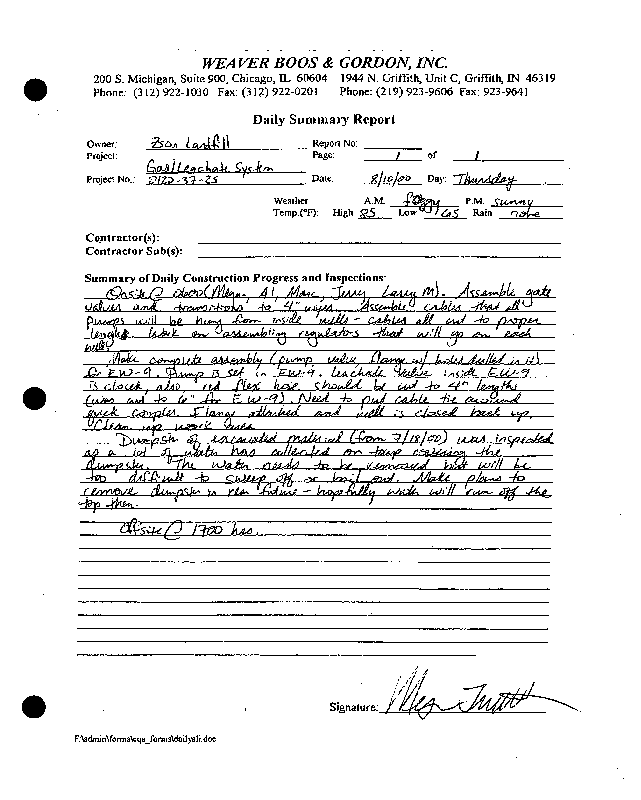 WEAVER BOOS & GORDON, INC.
200 S. Michigan, Suite 900, Chicago, IL 60604 1944 N. Griffith, Unit C, Griffith, IN 46319
Phone: (312) 922-1030 Fax: (312) 922-0201 Phone: (219) 923-9606 Fax: 923-9641
Daily Summary Report
Owner: Zion Landfill Report No:
Project: Gas/Leachate System Page: 1 of 1
Project No.: 0120-37-25 Date: 8/10/00 Day: Thursday
Weather A.M. foggy P.M. sunny
Temp.(°F): High 85 Low 65 Rain none
Contractor(s):
Contractor Sub(s):
Summary of Daily Construction Progress and Inspections:
Onsite @ (Meg, Al, Marc, Jerry, Larry M). Assemble gate
valves and transitions to 4" Assemble cables that all
pumps will be hung from inside wells - cables all cut to proper
lengths. Work on assembling regulators that will go on each
well.
Make complete assembly (pump, valve, flange w/ holes drilled in it)
for EW-9. Pump is set in EW-9. Leachate valve inside EW-9
is closed, also, red flex hose should be cut to 4" lengths
(was cut to 6" for EW-9). Need to put cable tie around
quick coupler. Flange attached and well is closed back up.
Clean up work area.
Dumpster of excavated material (from 7/18/00) was inspected
as a lot of water has collected on tarp covering the
dumpster. The water needs to be removed but will be
too difficult to sweep off or bail out. Make plans to
remove dumpster in near future - hopefully water will run off the
top then.
Offsite @ 1700 hrs.
Signature: Meg
F:\admin\forms\cqa_forms\dailyali.doc